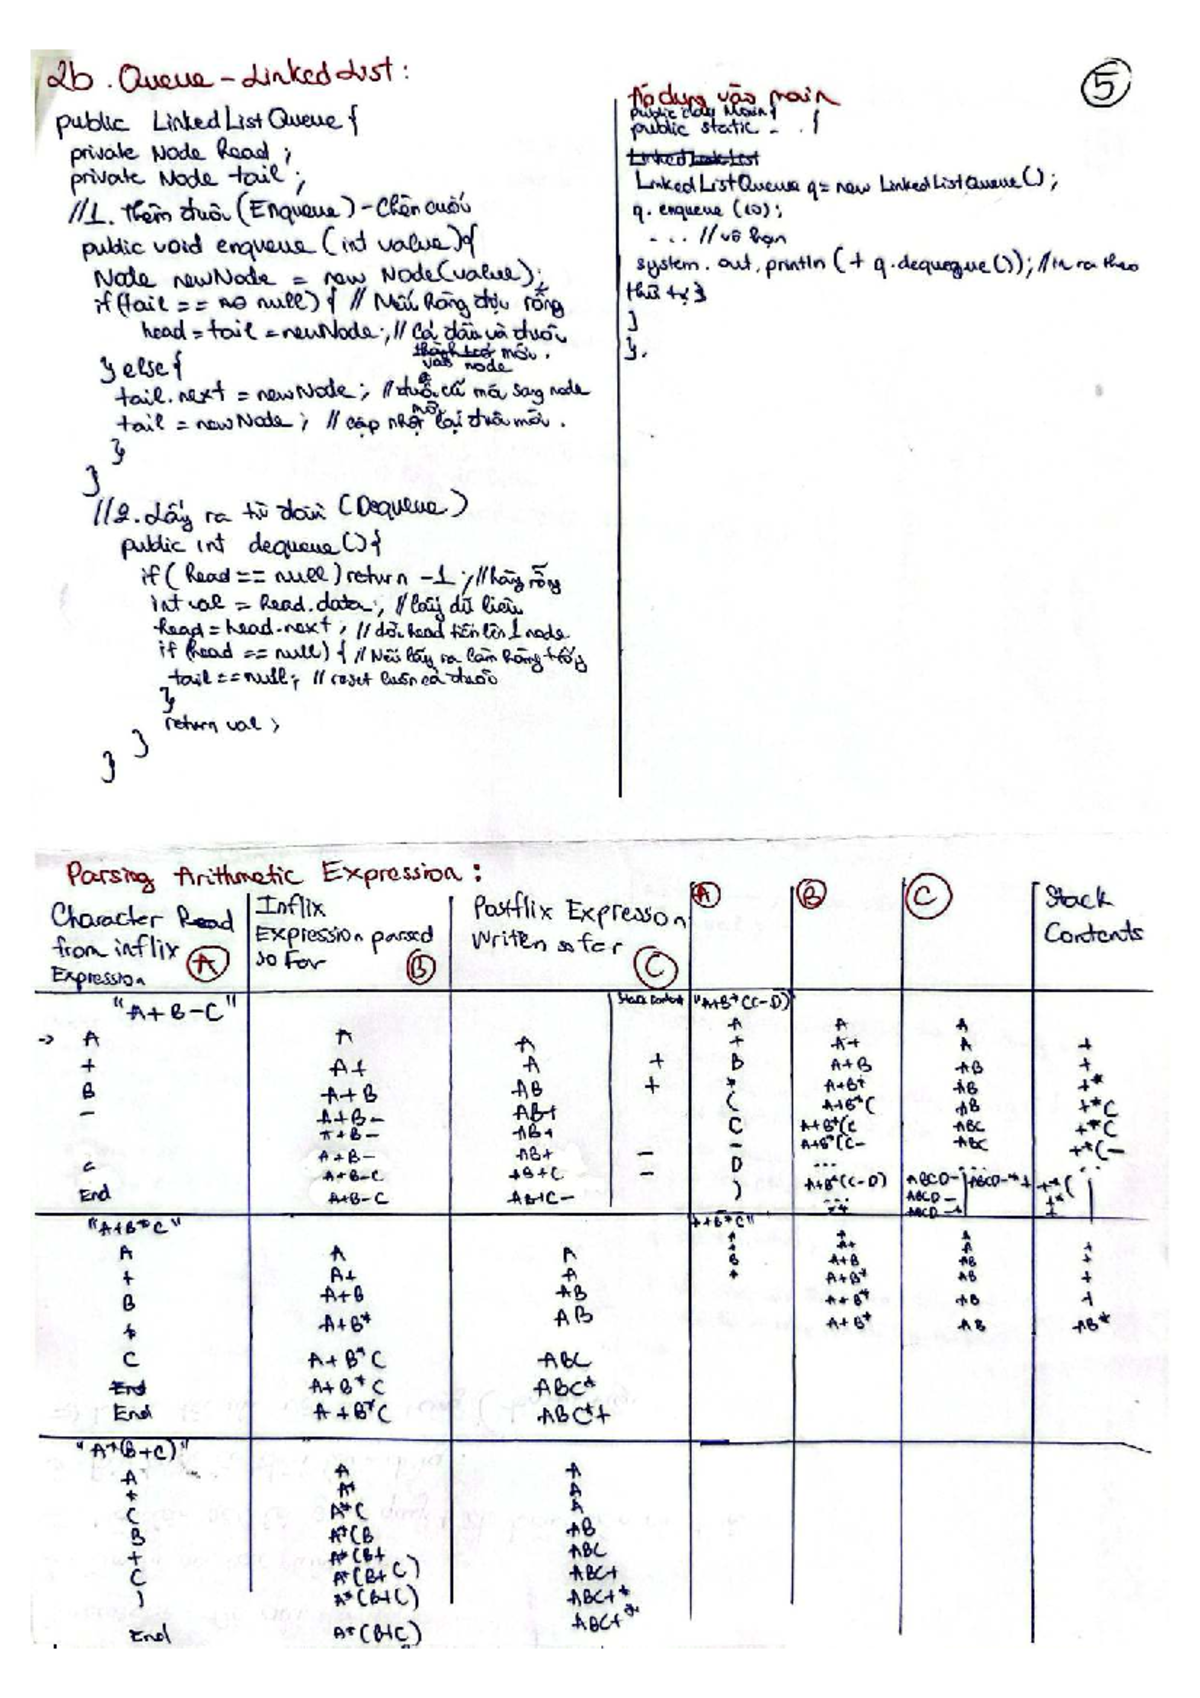 2b. Queue - Linked List:
public LinkedListQueue {
private Node head ;
private Node tail ;
//1. Thêm đuôi (Enqueue) - Chèn cuối
public void enqueue (int value){
Node newNode = new Node(value);
if(tail == null) { // Nếu hàng đợi rỗng
head = tail = newNode; // Cả đầu và đuôi
vào node mới.
} else {
tail.next = newNode ; // đuôi cũ nối sang node mới
tail = newNode ; // cập nhật lại đuôi mới.
}
}
//2. Lấy ra từ đầu (Dequeue)
public int dequeue () {
if ( head == null ) return -1 ; // hàng rỗng
int val = head.data ; // lấy dữ liệu
head = head.next ; // dời head tiến lên 1 node
if (head == null) { // Nếu lấy ra làm hàng trống
tail == null; // reset luôn cả đuôi
}
return val ;
}
}
5
Áp dụng vào main
public class Main {
public static ... {
LinkedListQueue q = new LinkedListQueue();
q. enqueue (10);
... // vô hạn
system. out. println (+ q.dequeque()); // in ra theo
thứ tự }
}
}.
Parsing Arithmetic Expression :
Character Read from inflix Expression A
Inflix Expression parsed so far B
Postflix Expresson Writen so far C
A B C Stack Contents
"A+B-C" Stack Content
→ A A A
+ A+ A +
B A+B AB +
- A+B- AB+
A+B- AB+
A+B- AB+ -
C A+B-C AB+C -
End A+B-C AB+C-
"A+B*(C-D)
A A A
+ A+ A +
B A+B AB +
* A+B* AB +*
( A+B*( AB +*(
C A+B*(C ABC +*(
- A+B*(C- ABC +*(-
D ... ... ...
) A+B*(C-D) ABCD- ABCD-*+ +*(
... ABCD- +*
"A+B*C"
A A A
+ A+ A
B A+B AB
* A+B* AB
C A+B*C ABC
End A+B*C ABC*
End A+B*C ABC*+
"A+B*C"
A+ A +
B A+B AB +
A+B* AB +
A+B* AB +
A+B* AB AB*
"A*(B+C)"
A A A
* A* A
( A*( A
B A*(B AB
+ A*(B+ ABC
C A*(B+C) ABC+
) A*(B+C) ABC+*
End A*(B+C) ABC+*